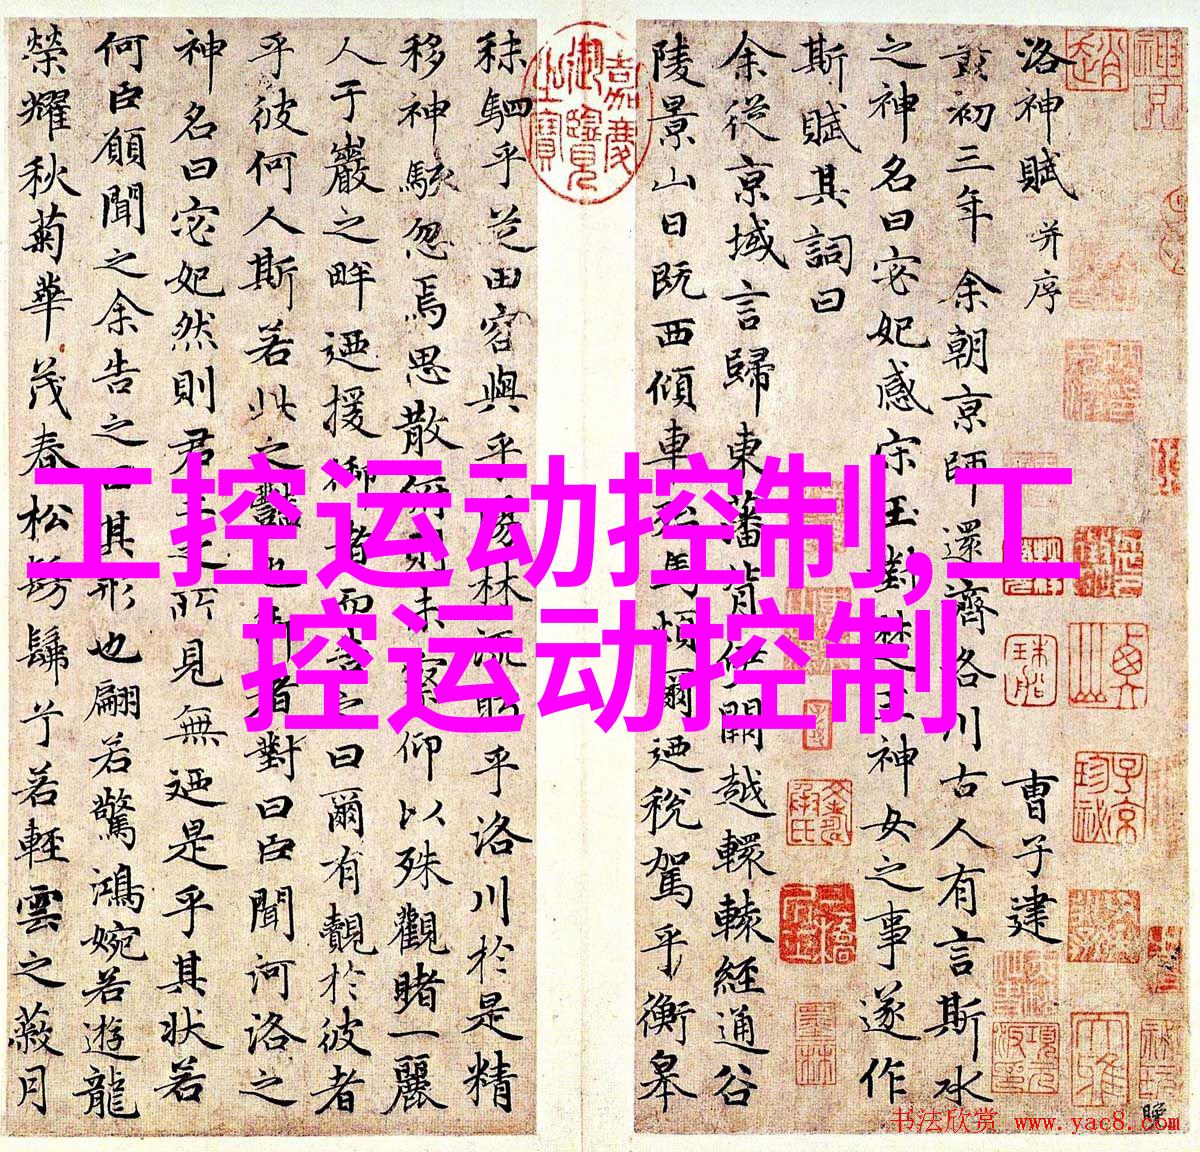 工控运动控制,工
控运动控制
洛神賦 并序
曹子建
黄初三年余朝京師還濟洛川古人有言斯水
之神名曰宓妃感宋玉對楚王神女之事遂作
斯賦其詞曰
余從京域言歸東藩背伊闕越轘轅經通谷
陵景山日既西傾車殆馬煩爾迺稅駕乎衡皋
秣駟乎芝田容與乎楊林流眄乎洛川於是精
移神駭忽焉思散俯則未察仰以殊觀睹一麗
人于巖之畔迺援御者而告之曰爾有覿於彼者
乎彼何人斯若此之豔也御者對曰臣聞河洛之
神名曰宓妃然則君王之所見無迺是乎其狀若
何臣願聞之余告之曰其形也翩若驚鴻婉若遊龍
榮耀秋菊華茂春松髣髴兮若輕雲之蔽月
嘉慶御覽之寶
书法欣赏 www.yac8.com